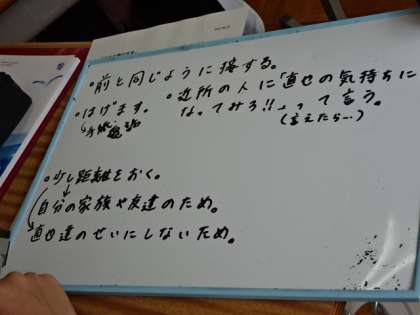 ・前と同じように接する。
・はげます。
・近所の人に「直也の気持ちに
なってみろ!!」って言う。
(言えたら…)
・少し距離をおく。
自分の家族や友達のため。
直也達のせいにしないため。